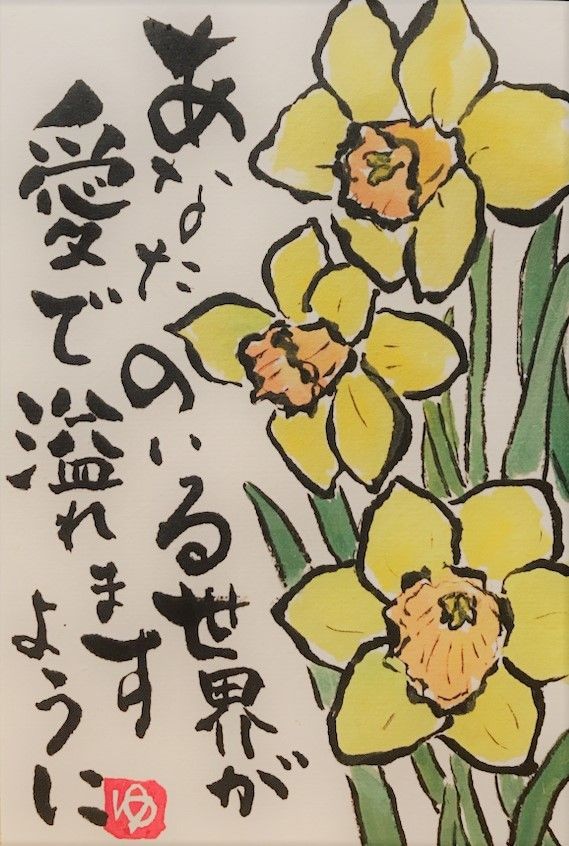 あなたのいる世界が
愛で溢れます
ように
ゆ